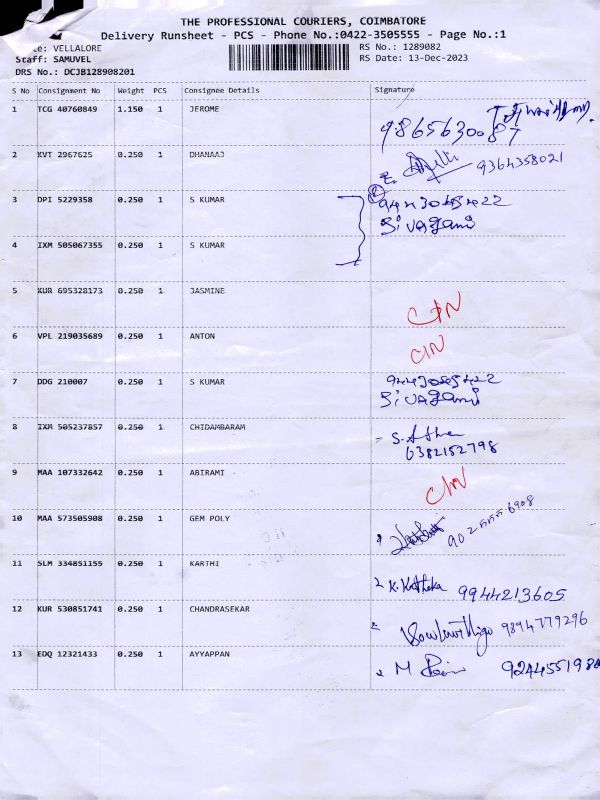 THE PROFESSIONAL COURIERS, COIMBATORE
Delivery Runsheet - PCS - Phone No.:0422-3505555 - Page No.:1
te: VELLALORE
RS No.: 1289082
Staff: SAMUVEL
RS Date: 13-Dec-2023
DRS No.: DCJB128908201
S No Consignment No Weight PCS Consignee Details Signature
1 TCG 40760849 1.150 1 JEROME
9865630087
2 KVT 2967625 0.250 1 DHANAAJ 9364358021
3 DPI 5229358 0.250 1 S KUMAR
Sivagami
4 IXM 505067355 0.250 1 S KUMAR
5 KUR 695328173 0.250 1 JASMINE
6 VPL 219035689 0.250 1 ANTON
CIN
7 DDG 210007 0.250 1 S KUMAR
Sivagami
8 IXM 505237857 0.250 1 CHIDAMBARAM
6382152798
9 MAA 107332642 0.250 1 ABIRAMI
10 MAA 573505908 0.250 1 GEM POLY
11 SLM 334851155 0.250 1 KARTHI
9944213605
12 KUR 530851741 0.250 1 CHANDRASEKAR
9894779296
13 EDQ 12321433 0.250 1 AYYAPPAN